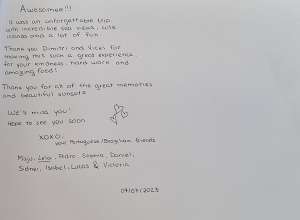 Awesomeee!!!
It was an unforgettable trip
with incredible sea views, wild
islands and a lot of fun.
Thank you Dimitri and Vicki for
making this such a great experience,
for your kindness, hard work and
amazing food!
Thank you for all of the great memories
and beautiful sunsets
We'll miss you!
Hope to see you soon
XOXO,
your Portuguese/Brazilian friends
Maju, Pedro, Sophia, Daniel,
Sidnei, Isabel, Lucas & Victoria